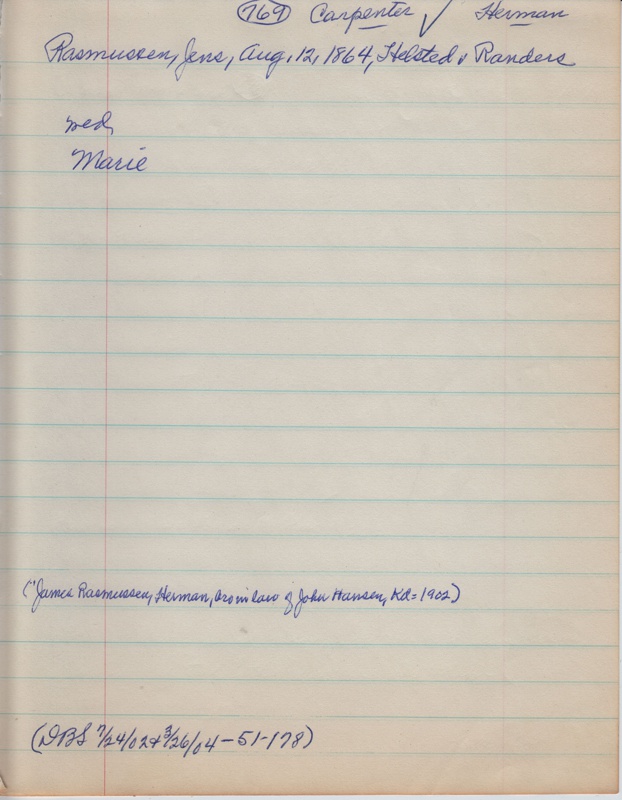 769 Carpenter ✓ Herman
Rasmussen, Jens, Aug, 12, 1864, Helsted v Randers
wed,
Marie
("James Rasmussen, Herman, bro in law of John Hansen, Kd = 1902)
(DBS 7/24/02 + 3/26/04 - 51-178)